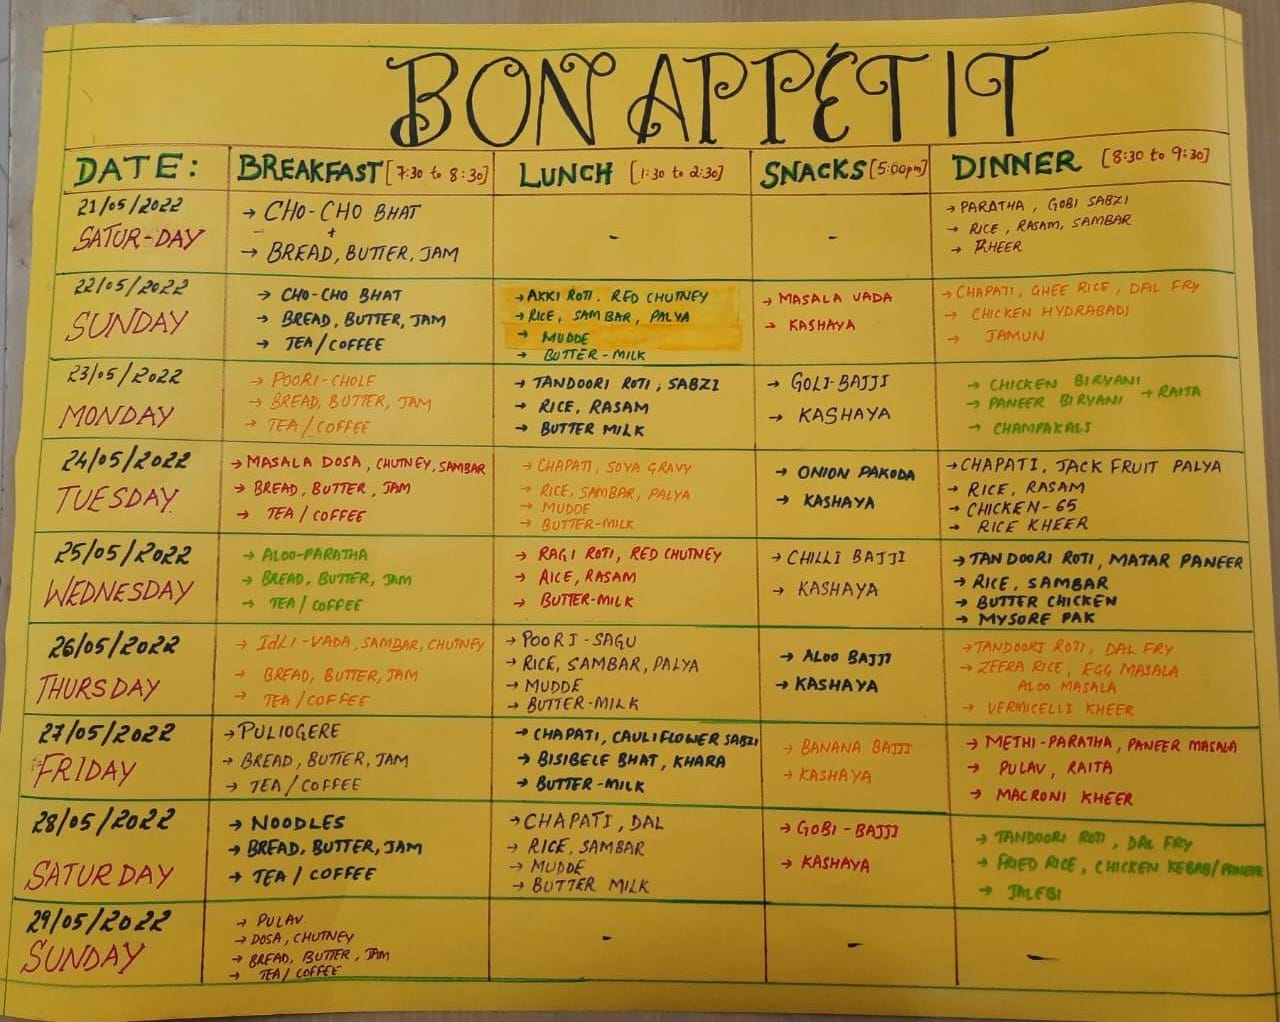 BON APPÉTIT
DATE: BREAKFAST [7:30 to 8:30] LUNCH [1:30 to 2:30] SNACKS [5:00pm] DINNER [8:30 to 9:30]
21/05/2022
SATUR-DAY
→ CHO-CHO BHAT
+
→ BREAD, BUTTER, JAM
-
-
→ PARATHA, GOBI SABZI
→ RICE, RASAM, SAMBAR
→ KHEER
22/05/2022
SUNDAY
→ CHO-CHO BHAT
→ BREAD, BUTTER, JAM
→ TEA/COFFEE
→ AKKI ROTI. RED CHUTNEY
→ RICE, SAMBAR, PALYA
→ MUDDE
→ BUTTER-MILK
→ MASALA VADA
→ KASHAYA
→ CHAPATI, GHEE RICE, DAL FRY
→ CHICKEN HYDRABADI
→ JAMUN
23/05/2022
MONDAY
→ POORI-CHOLE
→ BREAD, BUTTER, JAM
→ TEA/COFFEE
→ TANDOORI ROTI, SABZI
→ RICE, RASAM
→ BUTTER MILK
→ GOLI-BAJJI
→ KASHAYA
→ CHICKEN BIRYANI
→ PANEER BIRYANI → RAITA
→ CHAMPAKALI
24/05/2022
TUESDAY
→ MASALA DOSA, CHUTNEY, SAMBAR
→ BREAD, BUTTER, JAM
→ TEA/COFFEE
→ CHAPATI, SOYA GRAVY
→ RICE, SAMBAR, PALYA
→ MUDDE
→ BUTTER-MILK
→ ONION PAKODA
→ KASHAYA
→ CHAPATI, JACK FRUIT PALYA
→ RICE, RASAM
→ CHICKEN-65
→ RICE KHEER
25/05/2022
WEDNESDAY
→ ALOO-PARATHA
→ BREAD, BUTTER, JAM
→ TEA/COFFEE
→ RAGI ROTI, RED CHUTNEY
→ RICE, RASAM
→ BUTTER-MILK
→ CHILLI BAJJI
→ KASHAYA
→ TANDOORI ROTI, MATAR PANEER
→ RICE, SAMBAR
→ BUTTER CHICKEN
→ MYSORE PAK
26/05/2022
THURSDAY
→ IdLI-VADA, SAMBAR, CHUTNEY
→ BREAD, BUTTER, JAM
→ TEA/COFFEE
→ POORI-SAGU
→ RICE, SAMBAR, PALYA
→ MUDDE
→ BUTTER-MILK
→ ALOO BAJJI
→ KASHAYA
→ TANDOORI ROTI, DAL FRY
→ ZEERA RICE, EGG MASALA
ALOO MASALA
→ VERMICELLI KHEER
27/05/2022
FRIDAY
→ PULIOGERE
→ BREAD, BUTTER, JAM
→ TEA/COFFEE
→ CHAPATI, CAULIFLOWER SABZI
→ BISIBELE BHAT, KHARA
→ BUTTER-MILK
→ BANANA BAJJI
→ KASHAYA
→ METHI-PARATHA, PANEER MASALA
→ PULAV, RAITA
→ MACRONI KHEER
28/05/2022
SATURDAY
→ NOODLES
→ BREAD, BUTTER, JAM
→ TEA/COFFEE
→ CHAPATI, DAL
→ RICE, SAMBAR
→ MUDDE
→ BUTTER MILK
→ GOBI-BAJJI
→ KASHAYA
→ TANDOORI ROTI, DAL FRY
→ FRIED RICE, CHICKEN KEBAB/PANEER
→ JALEBI
29/05/2022
SUNDAY
→ PULAV
→ DOSA, CHUTNEY
→ BREAD, BUTTER, JAM
→ TEA/COFFEE
-
-
-